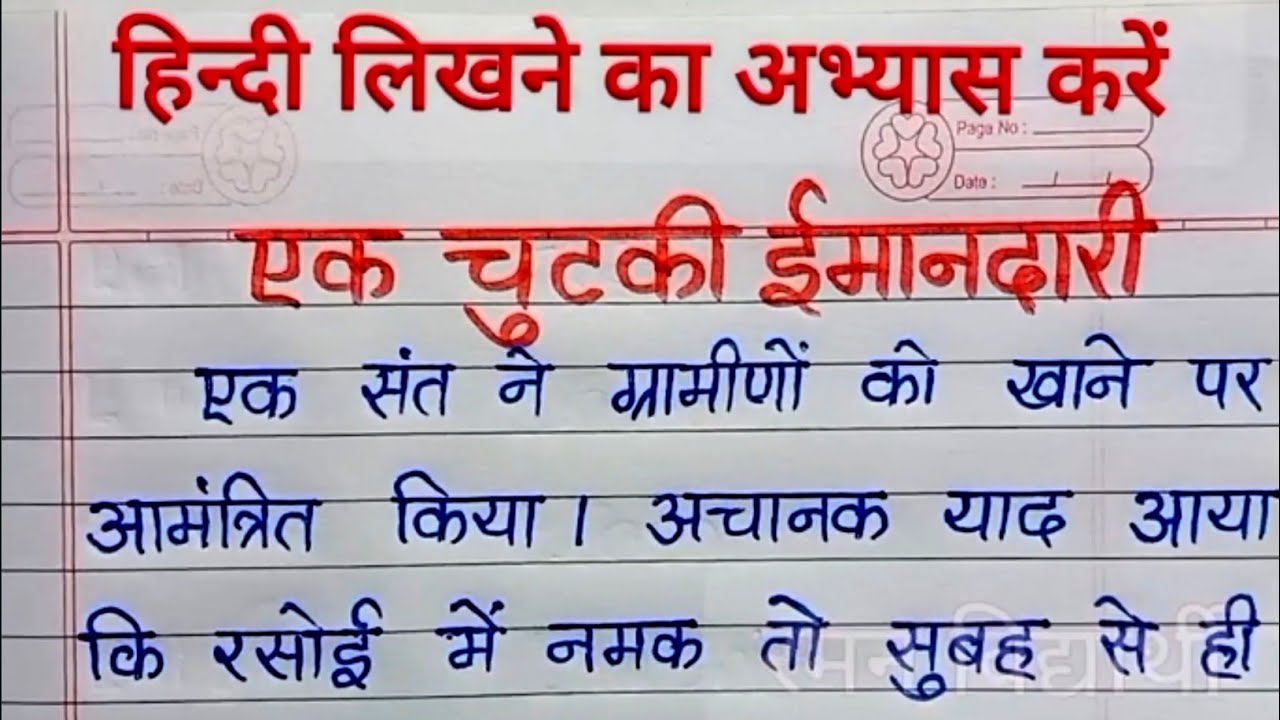 हिन्दी लिखने का अभ्यास करें
Page No :
Date :
एक चुटकी ईमानदारी
एक संत ने ग्रामीणों को खाने पर
आमंत्रित किया। अचानक याद आया
कि रसोई में नमक तो सुबह से ही